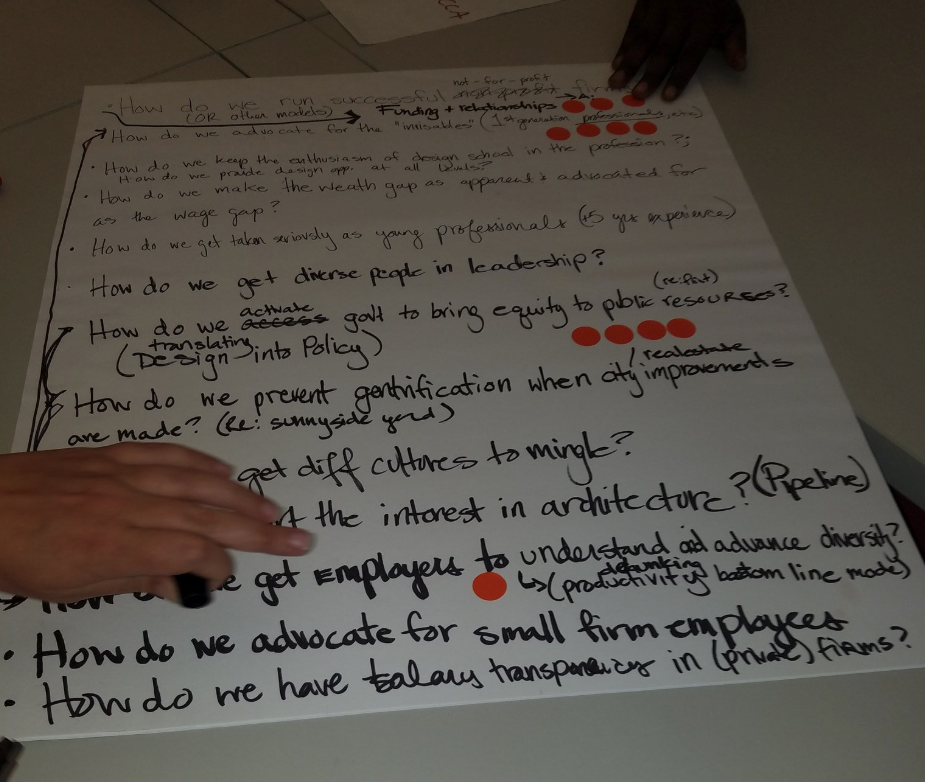 · How do we run successful not-for-profit firms
(OR other models) → Funding + relationships
How do we advocate for the "invisables" (1st generation professionals, etc)
· How do we keep the enthusiasm of design school in the profession?;
How do we provide design opp. at all levels?
· How do we make the weath gap as apparent & advocated for
as the wage gap?
· How do we get taken seriously as young professionals (+5 yrs experience)
How do we get diverse people in leadership?
(re: flat)
activate
How do we access gov't to bring equity to public resources?
translating
(Design into Policy)
/ realestate
How do we prevent gentrification when city improvements
are made? (Re: sunnyside yard)
get diff cultures to mingle?
the interest in architecture? (Pipeline)
get Employers to understand and advance diversity?
debunking
↳ (productivity bottom line mode)
· How do we advocate for small firm employees
· How do we have salary transparency in (private) firms?